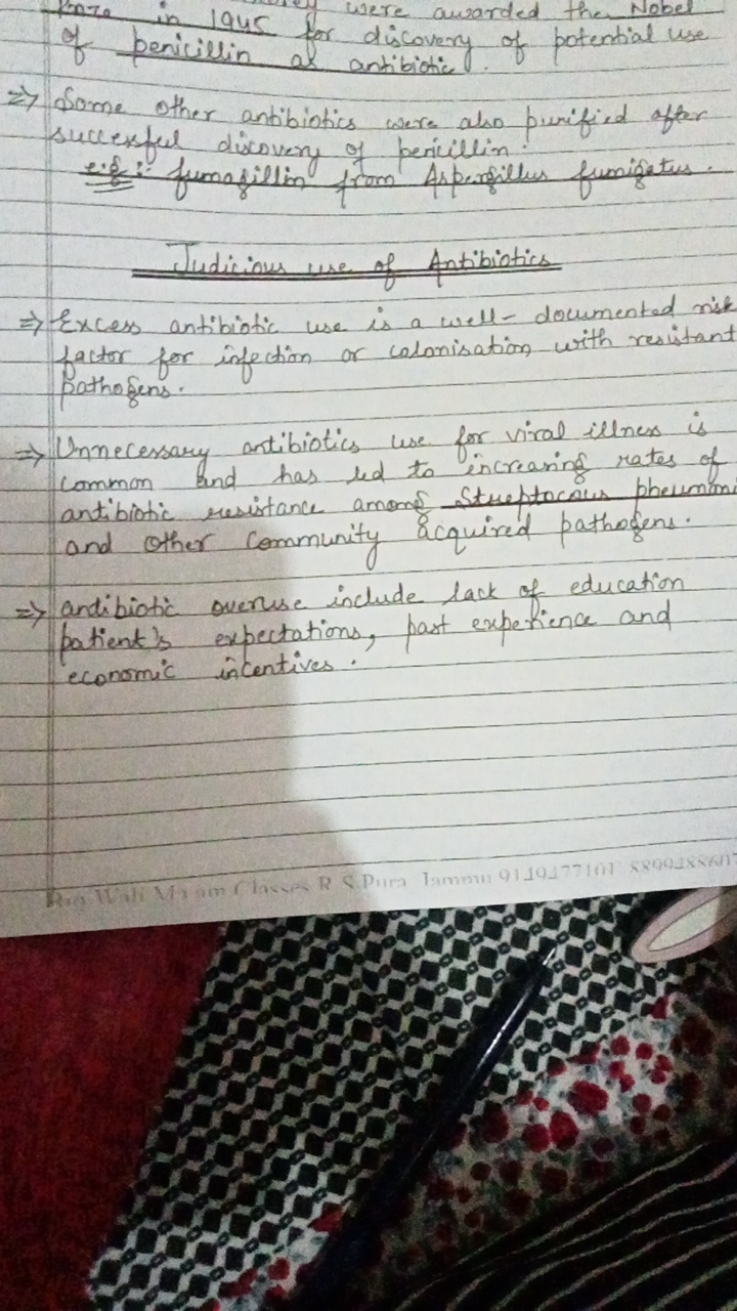 were awarded the Nobel
in 1945 for discovery of potential use
of penicillin as antibiotic.
=> Some other antibiotics were also purified after
successful discovery of penicillin.
e.g :- fumagillin from Aspergillus fumigatus.
Judicious use of Antibiotics
=> Excess antibiotic use is a well- documented risk
factor for infection or colonisation with resistant
pathogens.
=> Unnecessary antibiotics use for viral illness is
common and has led to increasing rates of
antibiotic resistance among
and other Community acquired pathogens.
=> antibiotic overuse include lack of education
patient's expectations, past experience and
economic incentives.
Classes R S Pura Jammu